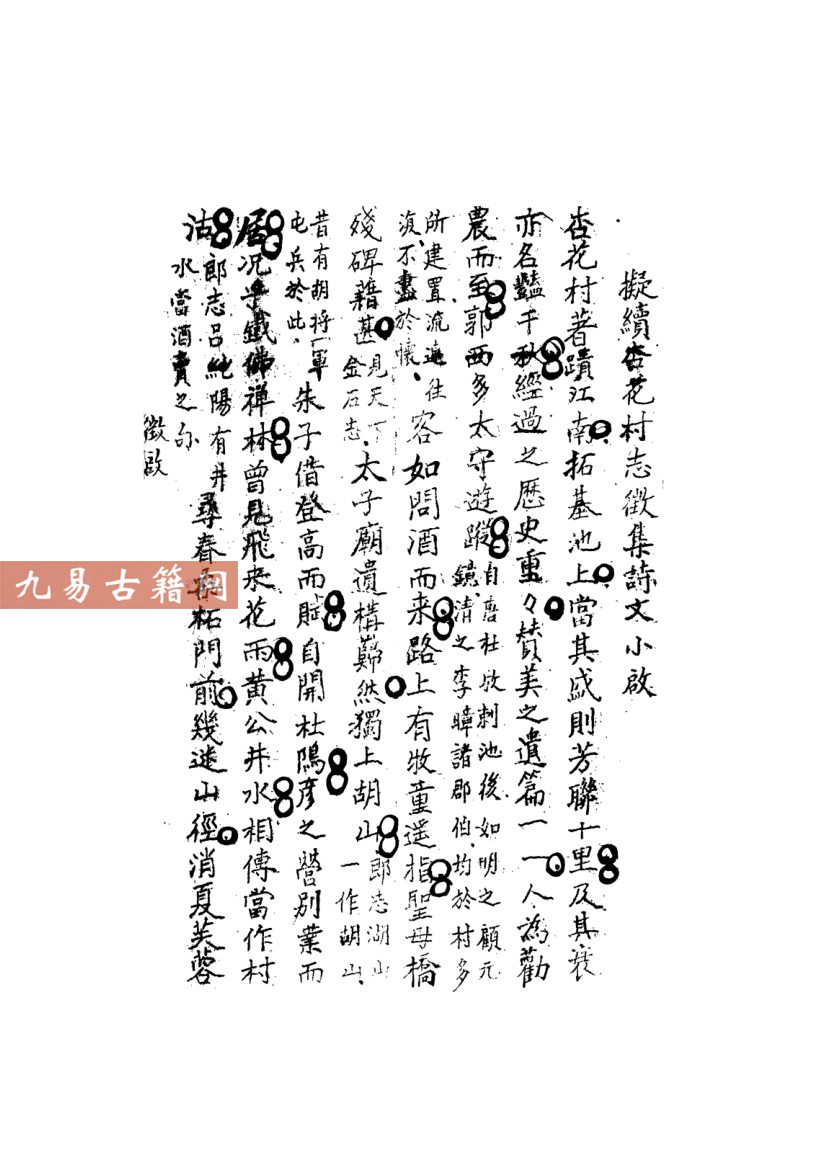 擬續杏花村志徵集詩文小啟
杏花村著蹟江南拓基池上當其盛則芳聯十里及其衰
亦名豔千秋經過之歷史重々贊美之遺篇一一人為勸
農而至郭西多太守遊蹤自唐杜牧刺池後如明之顧元
鏡清之李暲諸郡伯均於村多
所建置流連往
復不盡於懷客如問酒而来路上有牧童遥指聖母橋
殘碑藉甚見天下
金石志太子廟遺構巋然獨上胡山郎志湖山
一作胡山
昔有胡將軍
屯兵於此朱子借登高而賦自開杜隖彦之營別業而
居況乎鐵佛禪林曾見飛来花雨黄公井水相傳當作村
沽郎志呂純陽有井
水當酒賣之句尋春桒柘門前幾迷山徑消夏芙蓉
徵啟
九易古籍網